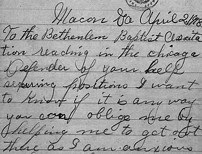 Macon Ga April 2/18
To the Bethenlem Baptist Associa
tion reading in the chicago
Defender of your help
securing positions I want
to know if it is any way
you can oblige me by
helping me to get out
there as I am anxious